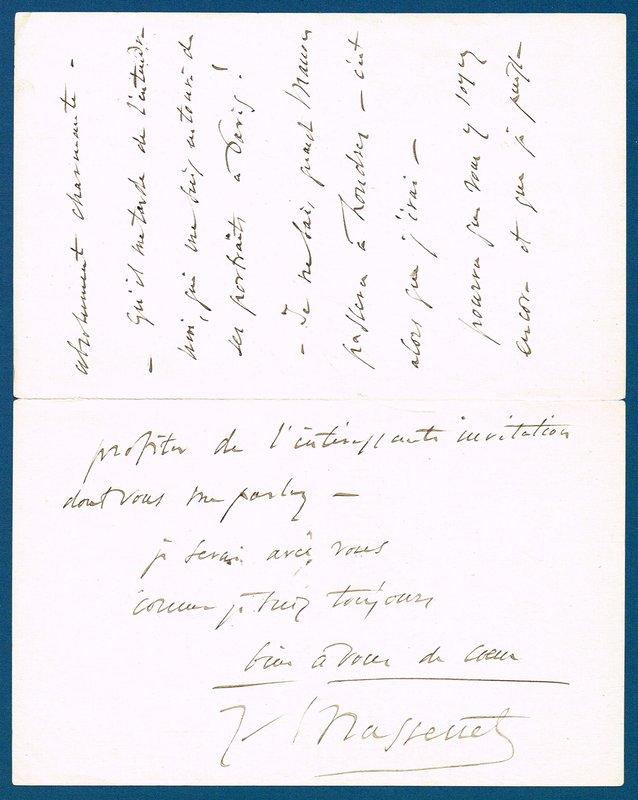 absolument charmante –
– Qu'il me tarde de l'entendre
moi, qui me suis entouré de
ses portraits à Paris!
– Je ne sais quand Manon
passera à Londres – c'est
alors que j'irai –
pourvu que vous y soyez
encore et que je puisse
profiter de l'intéressante invitation
dont vous me parlez –
je serai avec vous
comme je suis toujours
bien à vous de cœur
J. Massenet